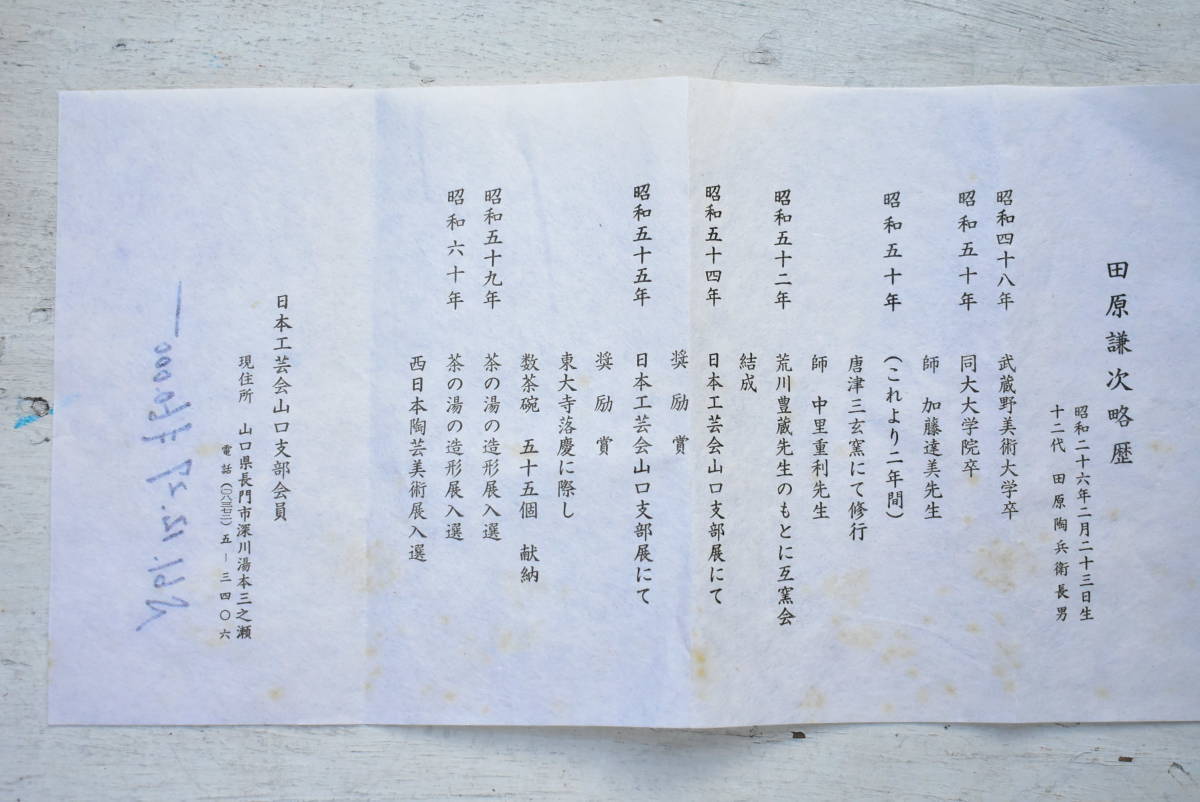 田原謙次略歴
昭和二十六年二月二十三日生
十二代 田原陶兵衛長男
昭和四十八年 武蔵野美術大学卒
昭和五十年 同大大学院卒
師 加藤達美先生
昭和五十年 (これより二年間)
唐津三玄窯にて修行
師 中里重利先生
昭和五十二年 荒川豊蔵先生のもとに互窯会
結成
昭和五十四年 日本工芸会山口支部展にて
奨励賞
昭和五十五年 日本工芸会山口支部展にて
奨励賞
東大寺落慶に際し
数茶碗 五十五個 献納
昭和五十九年 茶の湯の造形展入選
昭和六十年 茶の湯の造形展入選
西日本陶芸美術展入選
日本工芸会山口支部会員
現住所 山口県長門市深川湯本三之瀬